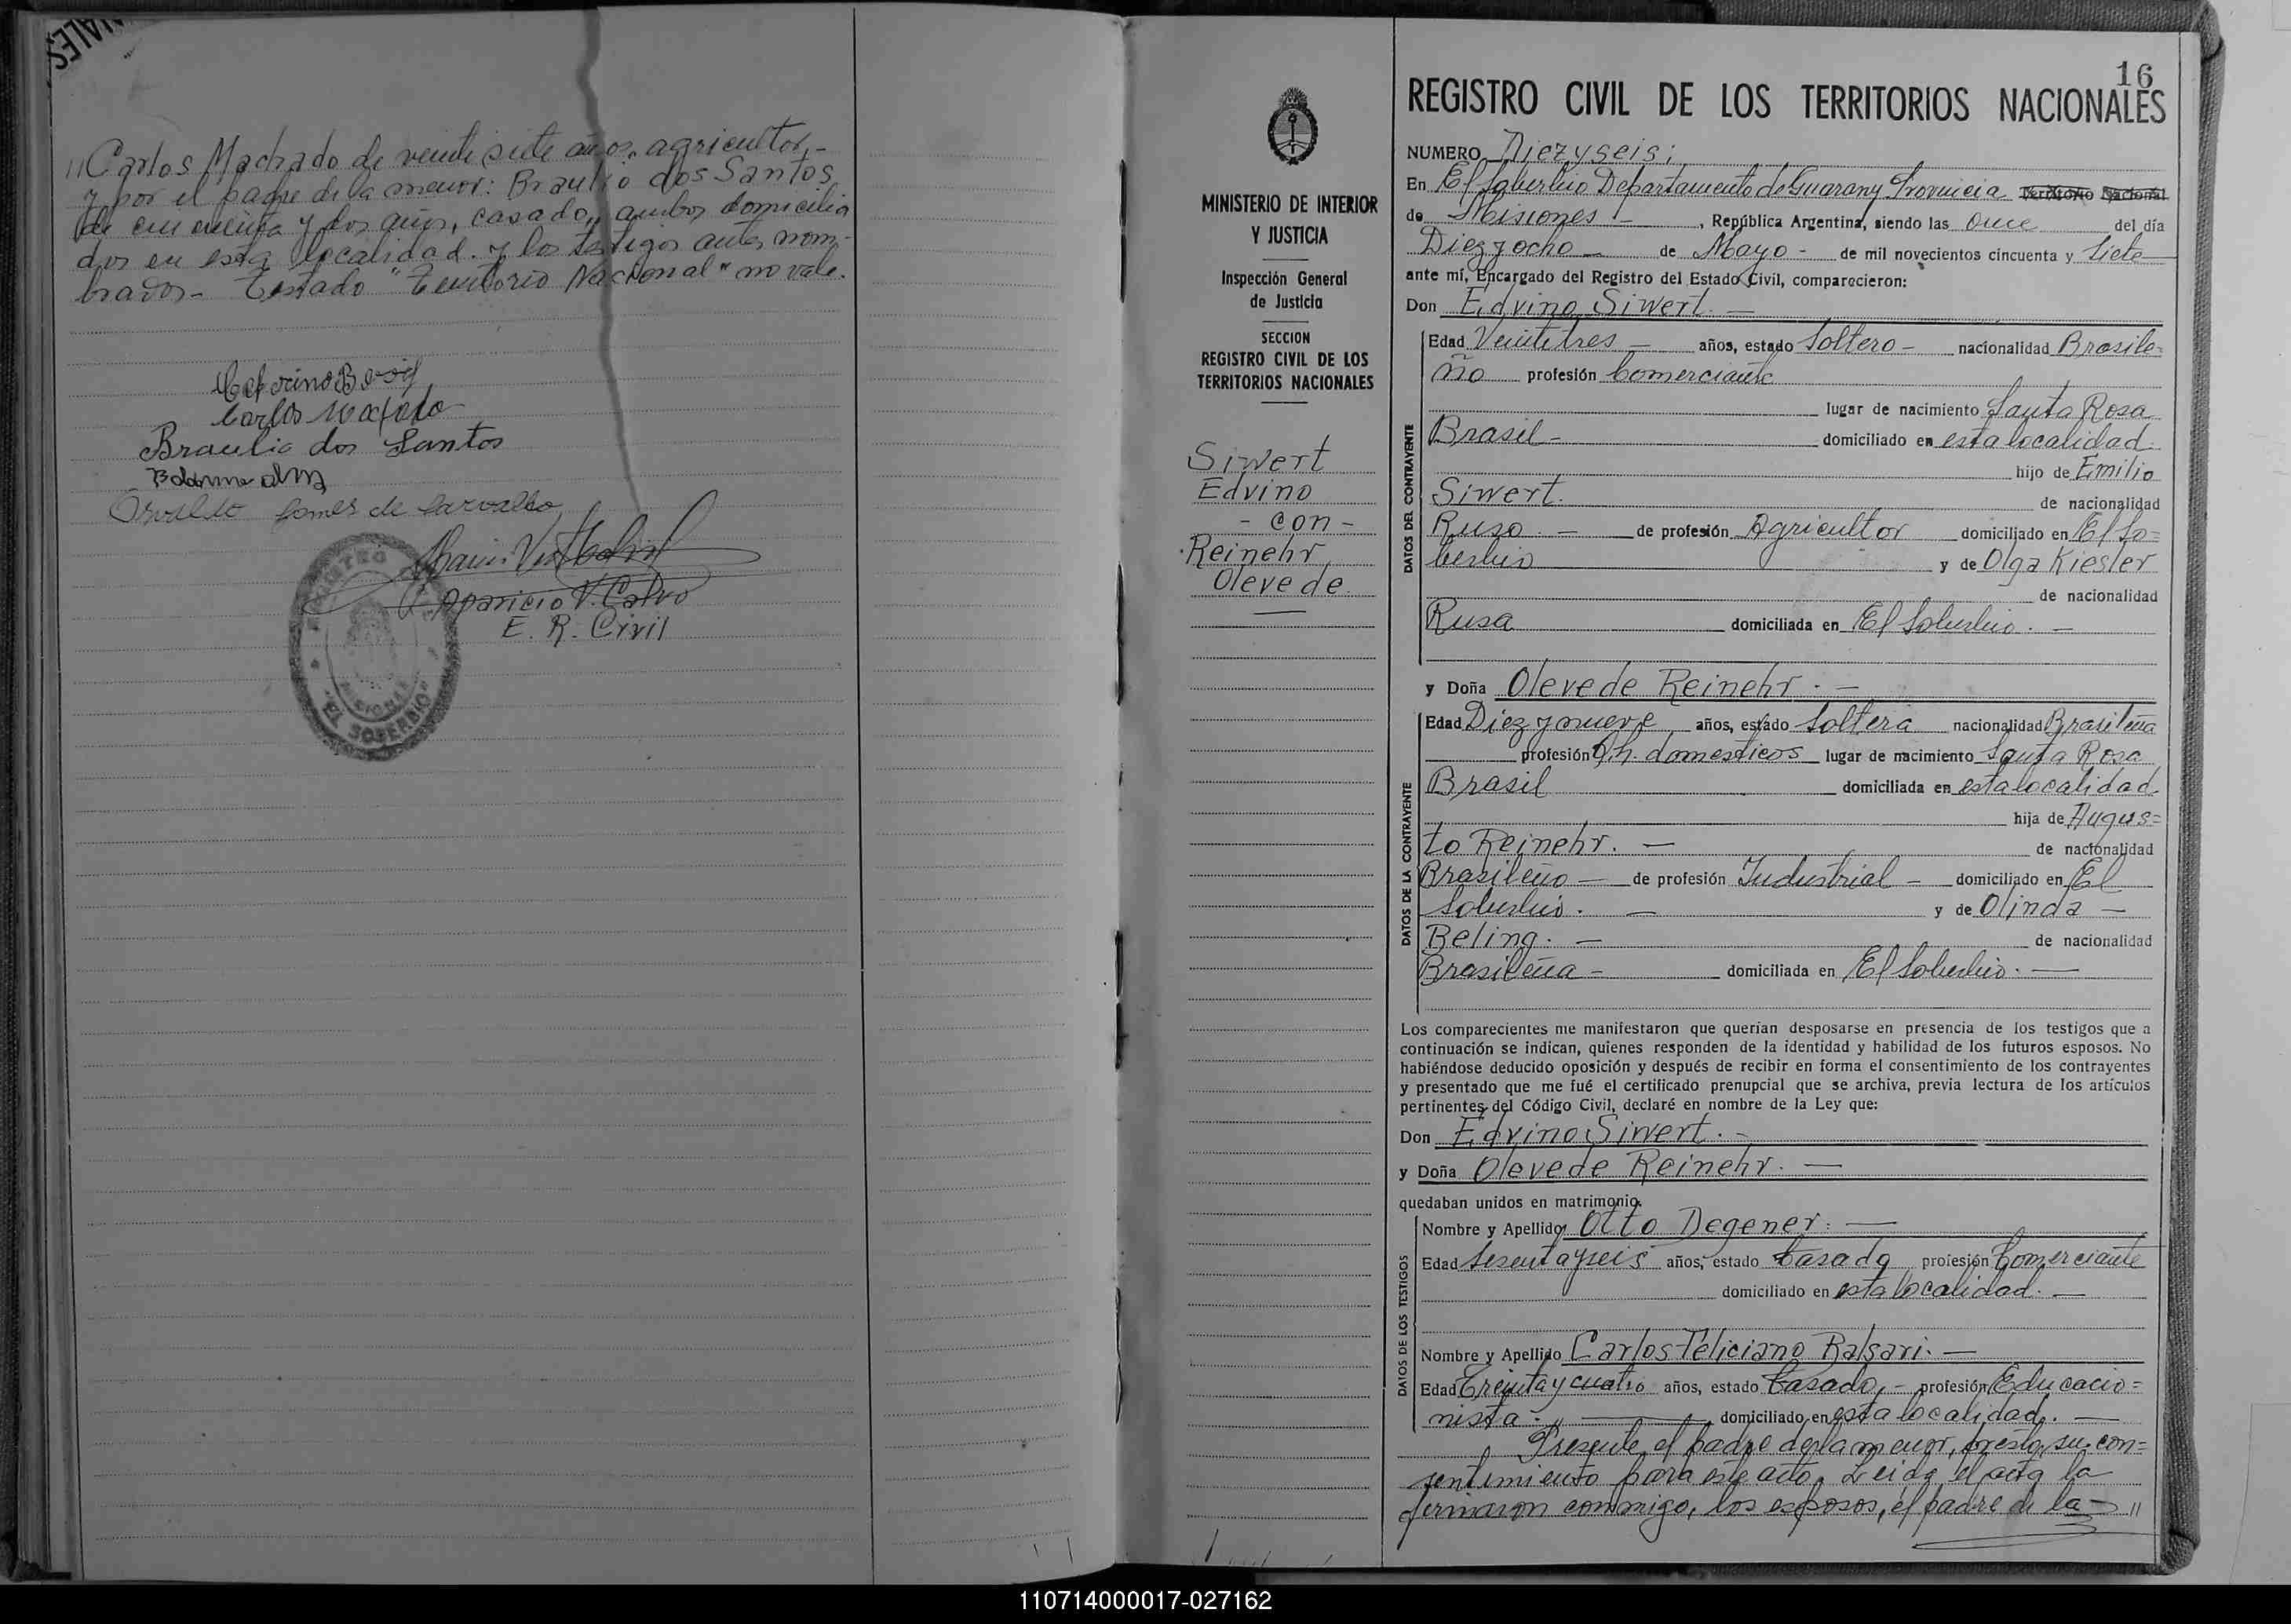 NALES
// Carlos Machado de veinte siete años, agricultor,-
y por el padre de la menor: Braulio dos Santos
de cincuenta y dos años, casado, ambos domicilia
dos en esta localidad. y los testigos antes nom-
brados- Testado "Territorio Nacional" no vale.
Braulio dos Santos
Osvaldo Gomes de Carvalho
Aparicio V. Calvo
E. R. Civil
"EL SOBERBIO"
MINISTERIO DE INTERIOR
Y JUSTICIA
Inspección General
de Justicia
SECCION
REGISTRO CIVIL DE LOS
TERRITORIOS NACIONALES
Siwert
Edvino
- con -
Reinehr
Olevede.
16
REGISTRO CIVIL DE LOS TERRITORIOS NACIONALES
NUMERO Diezyseis;
En El Soberbio Departamento de Guarany Provincia Territorio Nacional
de Misiones - , República Argentina, siendo las once del día
Diez y ocho - de Mayo - de mil novecientos cincuenta y Siete
ante mí, Encargado del Registro del Estado Civil, comparecieron:
Don Edvino Siwert. -
DATOS DEL CONTRAYENTE
Edad Veintitres - años, estado Soltero - nacionalidad Brasile=
ño profesión Comerciante
lugar de nacimiento Santa Rosa
Brasil - domiciliado en esta localidad.
hijo de Emilio
Siwert. de nacionalidad
Ruso. - de profesión Agricultor domiciliado en El So=
berbio y de Olga Kiesler
de nacionalidad
Rusa domiciliada en El Soberbio. -
y Doña Olevede Reinehr. -
DATOS DE LA CONTRAYENTE
Edad Diez y nueve años, estado Soltera nacionalidad Brasileña
profesión Qh. domesticos lugar de nacimiento Santa Rosa
Brasil domiciliada en esta localidad.
hija de Augus=
to Reinehr. - de nacionalidad
Brasileño - de profesión Industrial - domiciliado en El
Soberbio. - y de Olinda -
Beling. - de nacionalidad
Brasileña - domiciliada en El Soberbio. -
Los comparecientes me manifestaron que querían desposarse en presencia de los testigos que a
continuación se indican, quienes responden de la identidad y habilidad de los futuros esposos. No
habiéndose deducido oposición y después de recibir en forma el consentimiento de los contrayentes
y presentado que me fué el certificado prenupcial que se archiva, previa lectura de los artículos
pertinentes del Código Civil, declaré en nombre de la Ley que:
Don Edvino Siwert. -
y Doña Olevede Reinehr. -
quedaban unidos en matrimonio.
DATOS DE LOS TESTIGOS
Nombre y Apellido Otto Degener. -
Edad Sesentayseis años, estado Casado profesión Comerciante
domiciliado en esta localidad. -
Nombre y Apellido Carlos Feliciano Balsari. -
Edad Treinta y cuatro años, estado Casado, - profesión Educacio=
nista. - domiciliado en esta localidad. -
Presente el padre de la menor, presta su con=
sentimiento para este acto. Leida el acta la
firmaron conmigo, los esposos, el padre de la - //
110714000017-027162